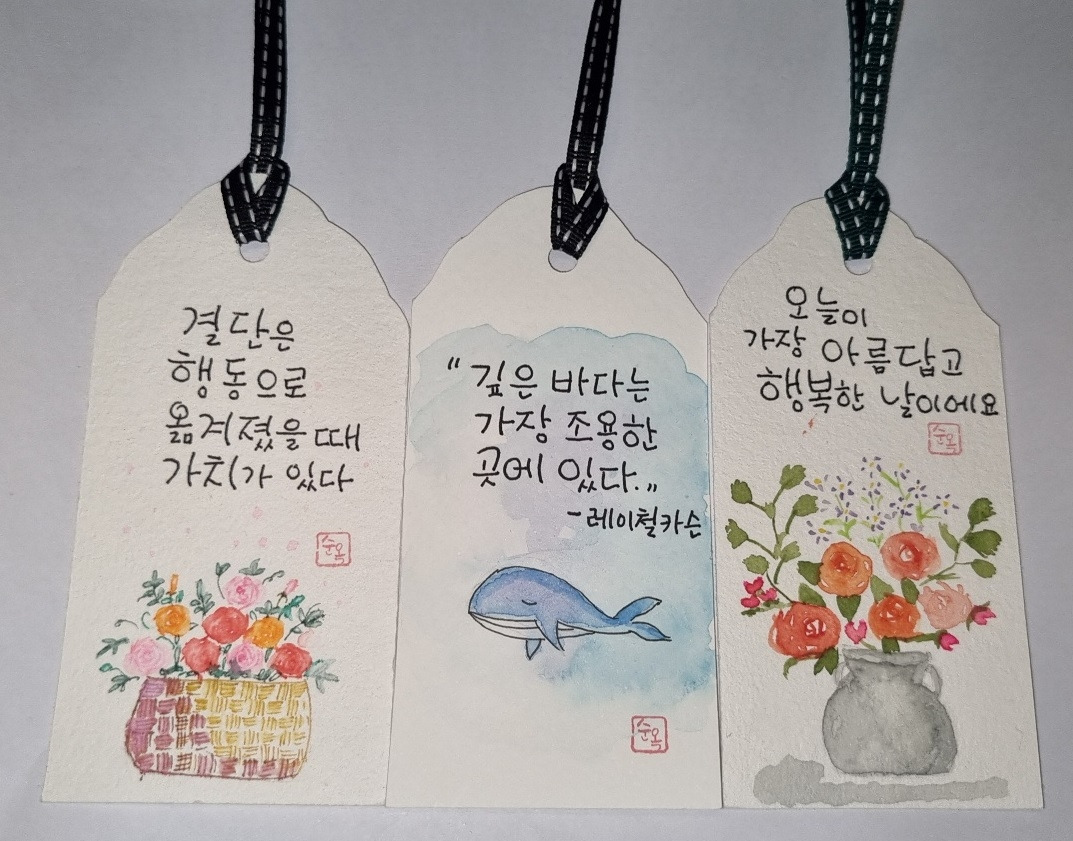 결단은
행동으로
옮겨졌을때
가치가 있다
순옥
"깊은 바다는
가장 조용한
곳에 있다.„
-레이첼카슨
순옥
오늘이
가장 아름답고
행복한 날이에요
순옥